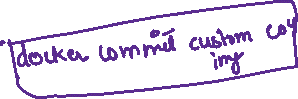 docker commit custom cov
img